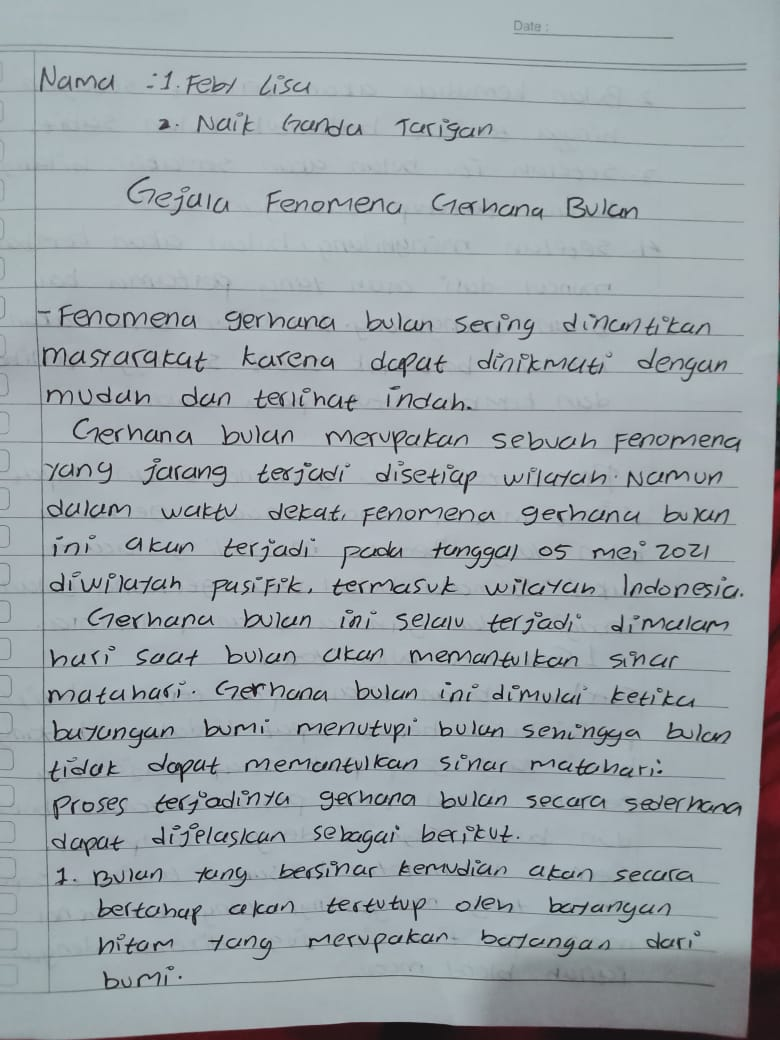 Date :
Nama : 1. Febi Lisa
2. Naik Ganda Tarigan
Gejala Fenomena Gerhana Bulan
- Fenomena gerhana bulan sering dinantikan
masyarakat karena dapat dinikmati dengan
mudah dan terlihat indah.
Gerhana bulan merupakan sebuah Fenomena
yang jarang terjadi disetiap wilayah. Namun
dalam waktu dekat, Fenomena gerhana bulan
ini akan terjadi pada tanggal 05 mei 2021
diwilayah pasifik, termasuk wilayah Indonesia.
Gerhana bulan ini selalu terjadi dimalam
hari saat bulan akan memantulkan sinar
matahari. Gerhana bulan ini dimulai ketika
bayangan bumi menutupi bulan sehingga bulan
tidak dapat memantulkan sinar matahari.
Proses terjadinya gerhana bulan secara sederhana
dapat dijelaskan sebagai berikut.
1. Bulan yang bersinar kemudian akan secara
bertahap akan tertutup oleh bayangan
hitam yang merupakan bayangan dari
bumi.